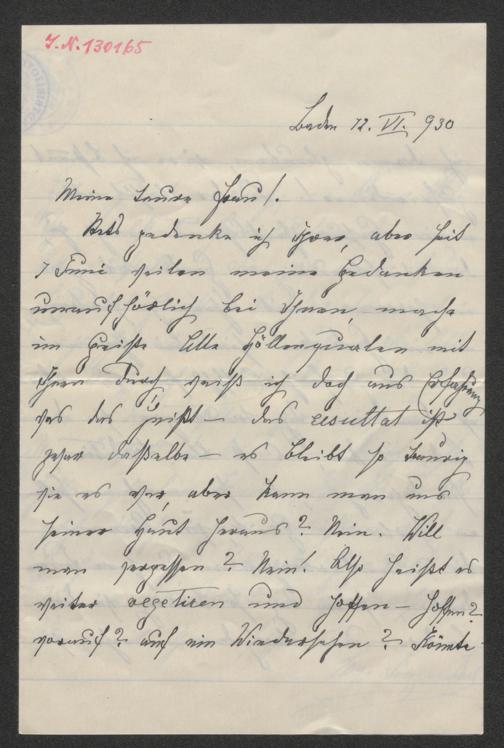 J.N.130165
Baden 12. VI. 930
Meine teure Frau!
Stets gedenke ich Ihrer, aber seit
7 Juni weilen meine Gedanken
unaufhörlich bei Ihnen, mache
im Geiste alle Höllenqualen mit
Ihnen durch, weiß ich doch aus Erfahrung
was das heißt – das resultat ist
zwar dasselbe – es bleibt so traurig
wie es war, aber kann man aus
seiner Haut heraus? Nein. Will
man vergessen? Nein! Also heißt es
weiter vegetiren und hoffen – hoffen?
worauf? auf ein Wiedersehen? Könnte